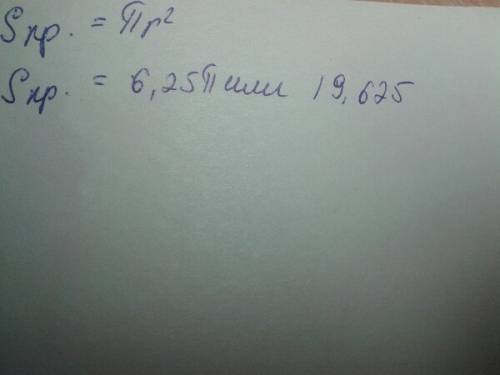 Sкр. = Пr²
Sкр. = 6,25П или 19,625